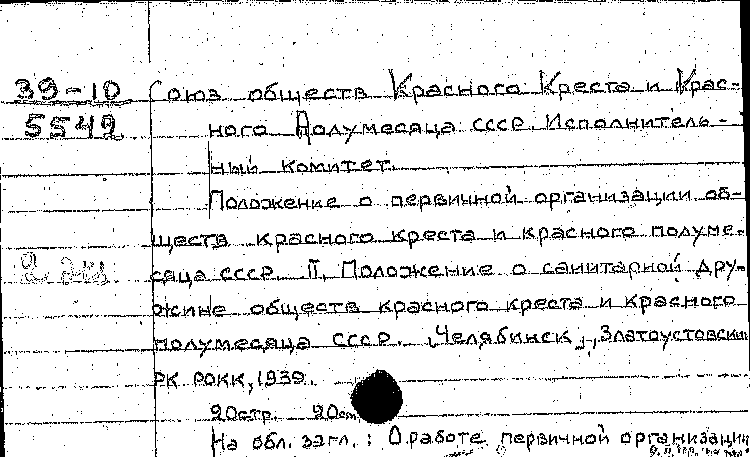 39-10 Союз обществ Красного Креста и Крас-
5549 ного Полумесяца СССР. Исполнитель-
ный комитет.
Положение о первичной организации об-
ществ красного креста и красного полуме-
2 экз сяца СССР. II, Положение о санитарной дру-
жине обществ красного креста и красного
полумесяца СССР. [Челябинск], Златоустовский
РК РОКК, 1939.
20стр. 20см
На обл. загл.: О работе первичной организации